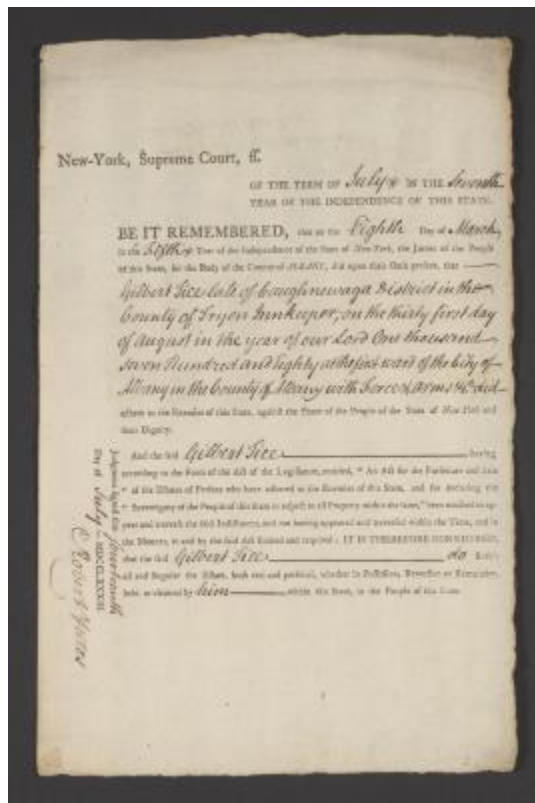 New-York, Supreme Court, ss.
OF THE TERM OF July IN THE Seventh
YEAR OF THE INDEPENDENCE OF THIS STATE.
BE IT REMEMBERED, that on the Eighth Day of March,
in the Year of the Independence of the State of New-York, the Jurors of the People
of this State, for the Body of the County of ALBANY, did upon their Oath present, that
Gilbert Tice late of Caughnewaga District in the
County of Tryon Innkeeper, on the thirty first day
of August in the year of our Lord One thousand
Seven Hundred and Eighty at the first ward of the City of
Albany in the County of Albany with Force & Arms &c did
adhere to the Enemies of this State, against the Peace of the People of the State of New-York and
their Dignity.
And the said Gilbert Tice having
according to the Form of the Act of the Legislature, entitled, "An Act for the Forfeiture and Sale
" of the Estates of Persons who have adhered to the Enemies of this State, and for declaring the
" Sovereignty of the People of this State in respect to all Property within the same," been notified to ap-
pear and traverse the said Indictment, and not having appeared and traversed within the Time, and in
the Manner, in and by the said Act limited and required; IT IS THEREFORE CONSIDERED,
that the said Gilbert Tice do Forfeit
all and singular the Estate, both real and personal, whether in Possession, Reversion or Remainder,
held or claimed by him within this State, to the People of this State.
Judgment signed this Fourteenth
Day of July MDCCLXXXIII.
Robert Yates